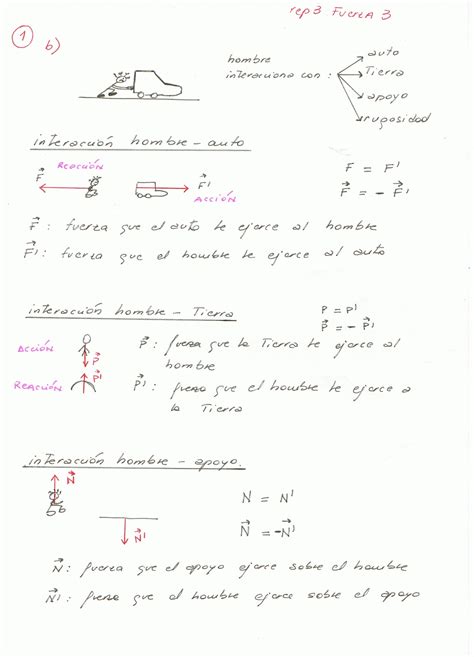 rep 3 Fuerza 3
1
b)
hombre
interacciona con :
auto
Tierra
apoyo
rugosidad
interacción hombre - auto
REACCIÓN
F⃗
F⃗'
ACCIÓN
F = F'
F⃗ = - F⃗'
F⃗ : fuerza que el auto le ejerce al hombre
F⃗' : fuerza que el hombre le ejerce al auto
interacción hombre - Tierra
P = P'
P⃗ = - P⃗'
ACCIÓN
P⃗
P⃗'
REACCIÓN
P⃗ : fuerza que la Tierra le ejerce al
hombre
P⃗' : fuerza que el hombre le ejerce a
la Tierra
interacción hombre - apoyo.
N⃗
N⃗'
N = N'
N⃗ = -N⃗'
N⃗ : fuerza que el apoyo ejerce sobre el hombre
N⃗' : fuerza que el hombre ejerce sobre el apoyo